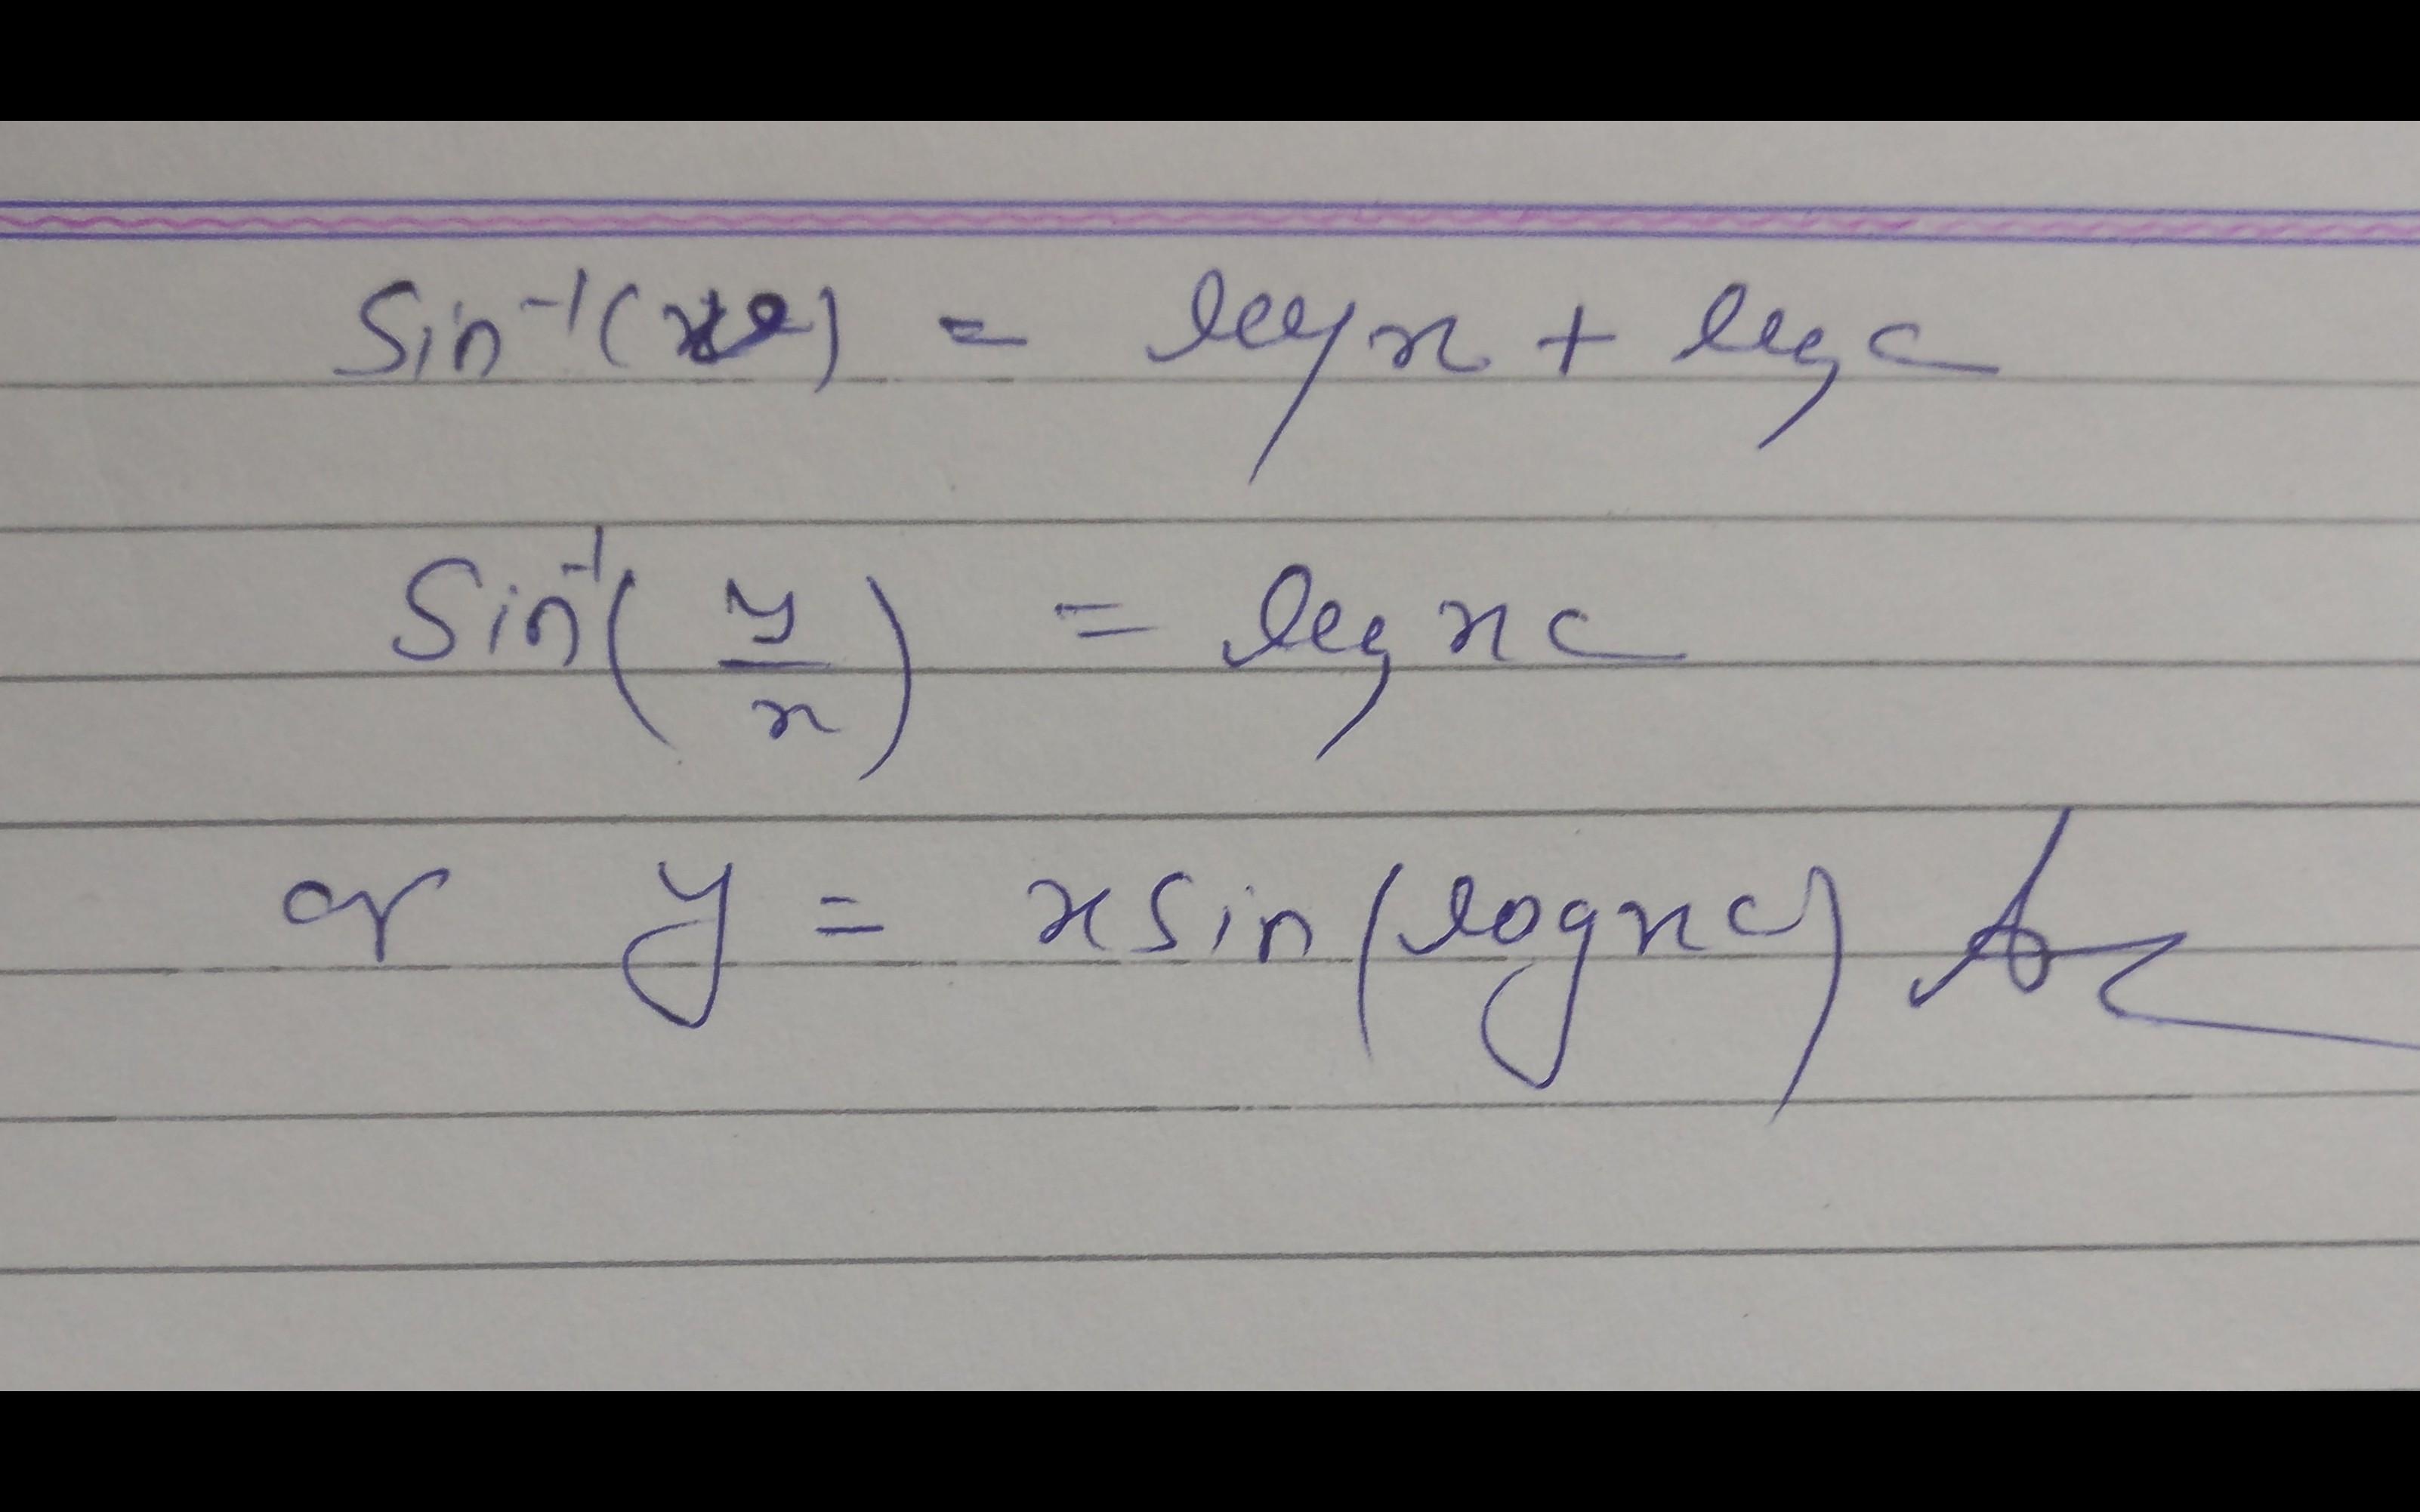 Sin⁻¹( ) = log x + log c
Sin⁻¹(y/x) = log x c
or y = x sin(log x c) A